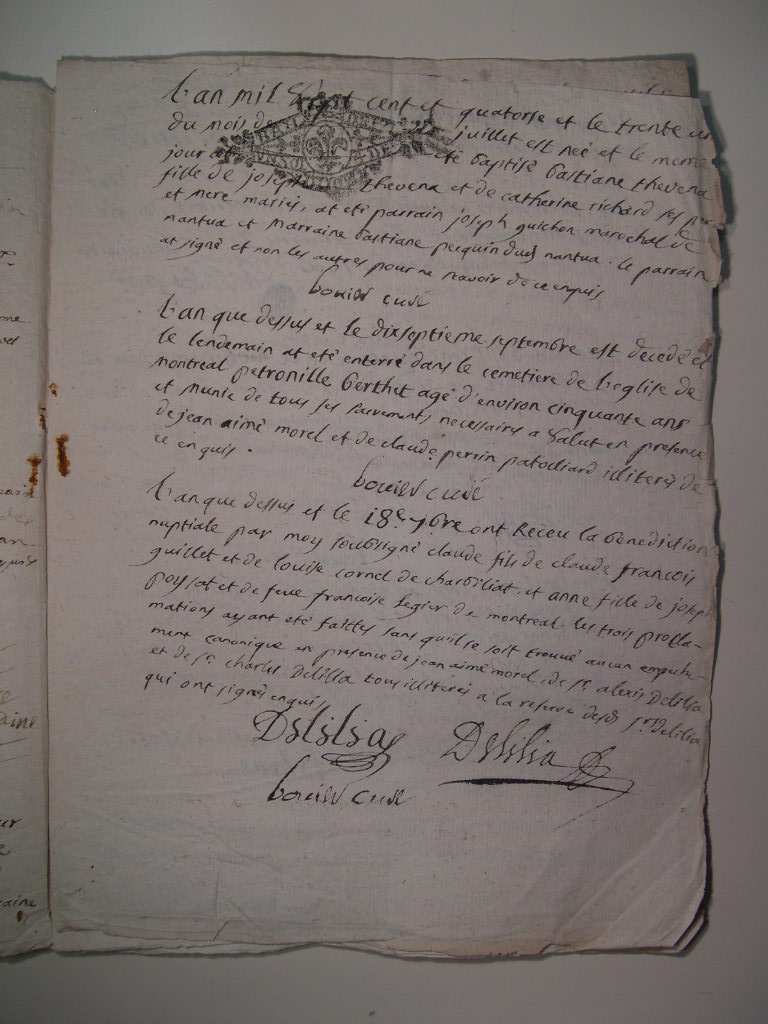 L'an mil sept cent et quatorse et le trente un
du mois de juillet est neé et le meme
jour at eté baptisé bastiane thevena
fille de joseph thevena et de catherine richard ses pere
et mere mariés, at eté parrain joseph guichon marechal de
nantua et marraine bastiane pecquin dud nantua. le parrain
at signé et non les autres pour ne scavoir de ce enquis
bouier curé
L'an que dessus et le dixseptieme septembre est decedé et
le lendemain at eté enterré dans le cemetiere de l'eglise de
montreal petronille berthet agé d'environ cinquante ans
et munie de tous ses sacrements necessaires a salut en presence
de jean aimé morel et de claude perrin patodiard illiterés de
ce enquis.
bouier curé
L'an que dessus et le 18e 7bre ont Receu la benediction
nuptiale par moy soubsigné claude fils de claude françois
guillet et de louise cornel de charbiliat et anne fille de joseph
poyssat et de feue francoise legier de montreal les trois procla-
mations ayant eté faittes sans qu'il se soit trouvé aucun empeche-
ment canonique en presence de jean aimé morel, de sr. alexis Delilia
et de sr. charles Delilia tous illiterés a la reserve desd srs Delilia
qui ont signé enquis
Delilia Delilia
bouier curé